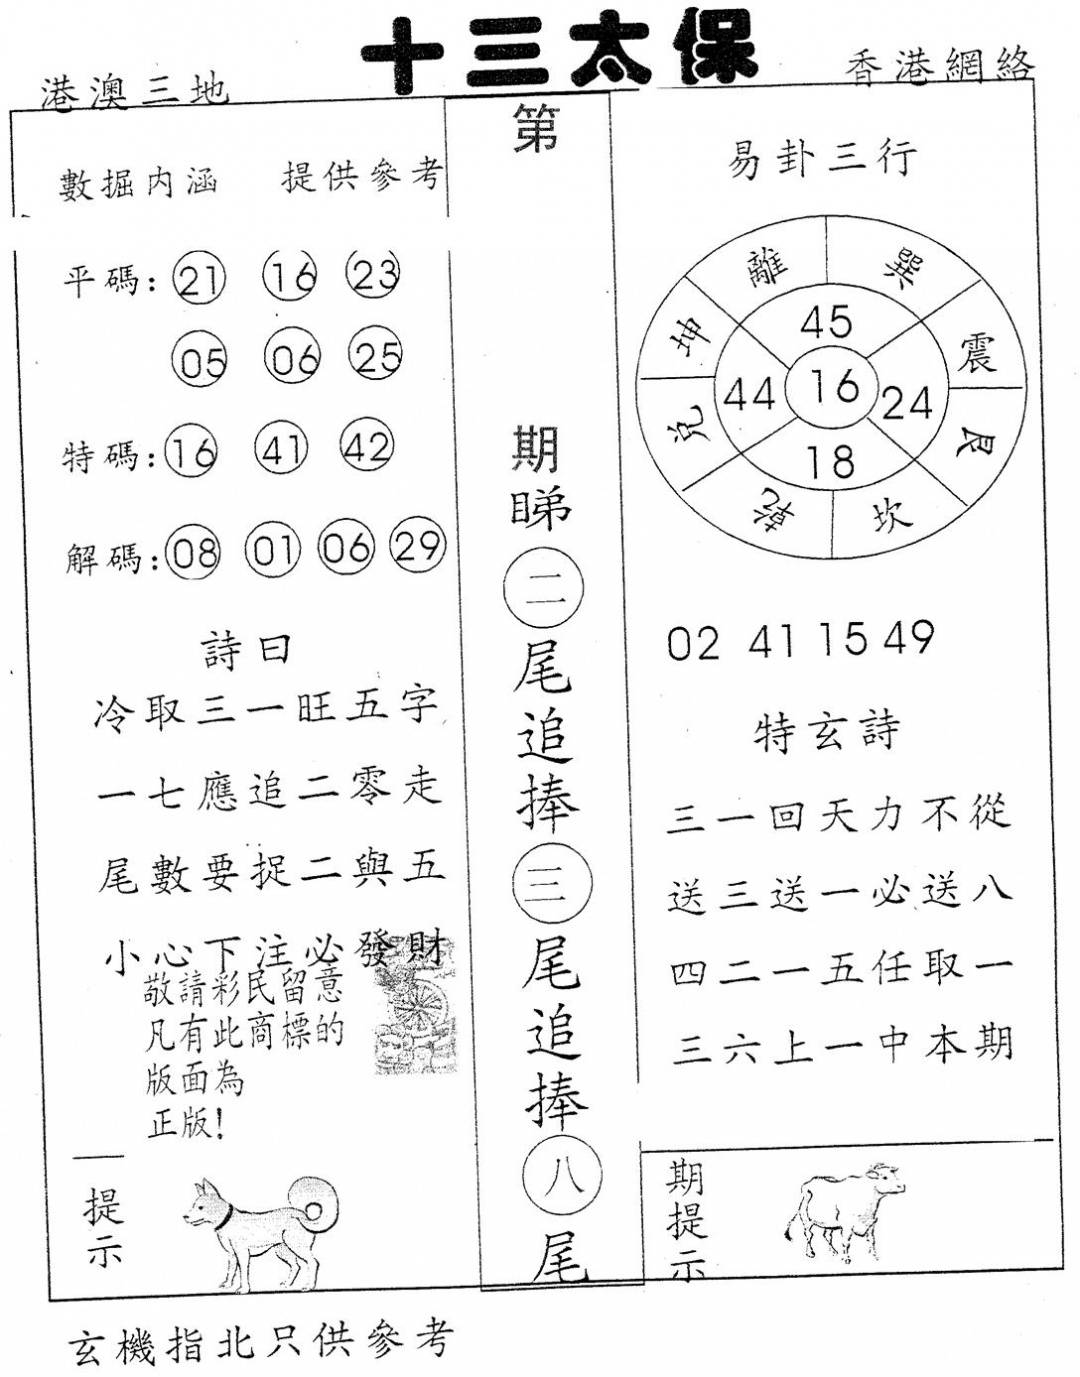 十三太保
港澳三地
香港網絡
數掘内涵 提供參考
平碼: 21 16 23
05 06 25
特碼: 16 41 42
解碼: 08 01 06 29
詩曰
冷取三一旺五字
一七應追二零走
尾數要捉二與五
小心下注必發財
敬請彩民留意
凡有此商標的
版面為
正版!
提示
第
期
睇
二
尾
追
捧
三
尾
追
捧
八
尾
易卦三行
離 巽
坤 震
兌 艮
乾 坎
45
44 16 24
18
02 41 15 49
特玄詩
三一回天力不從
送三送一必送八
四二一五任取一
三六上一中本期
期提示
玄機指北只供參考